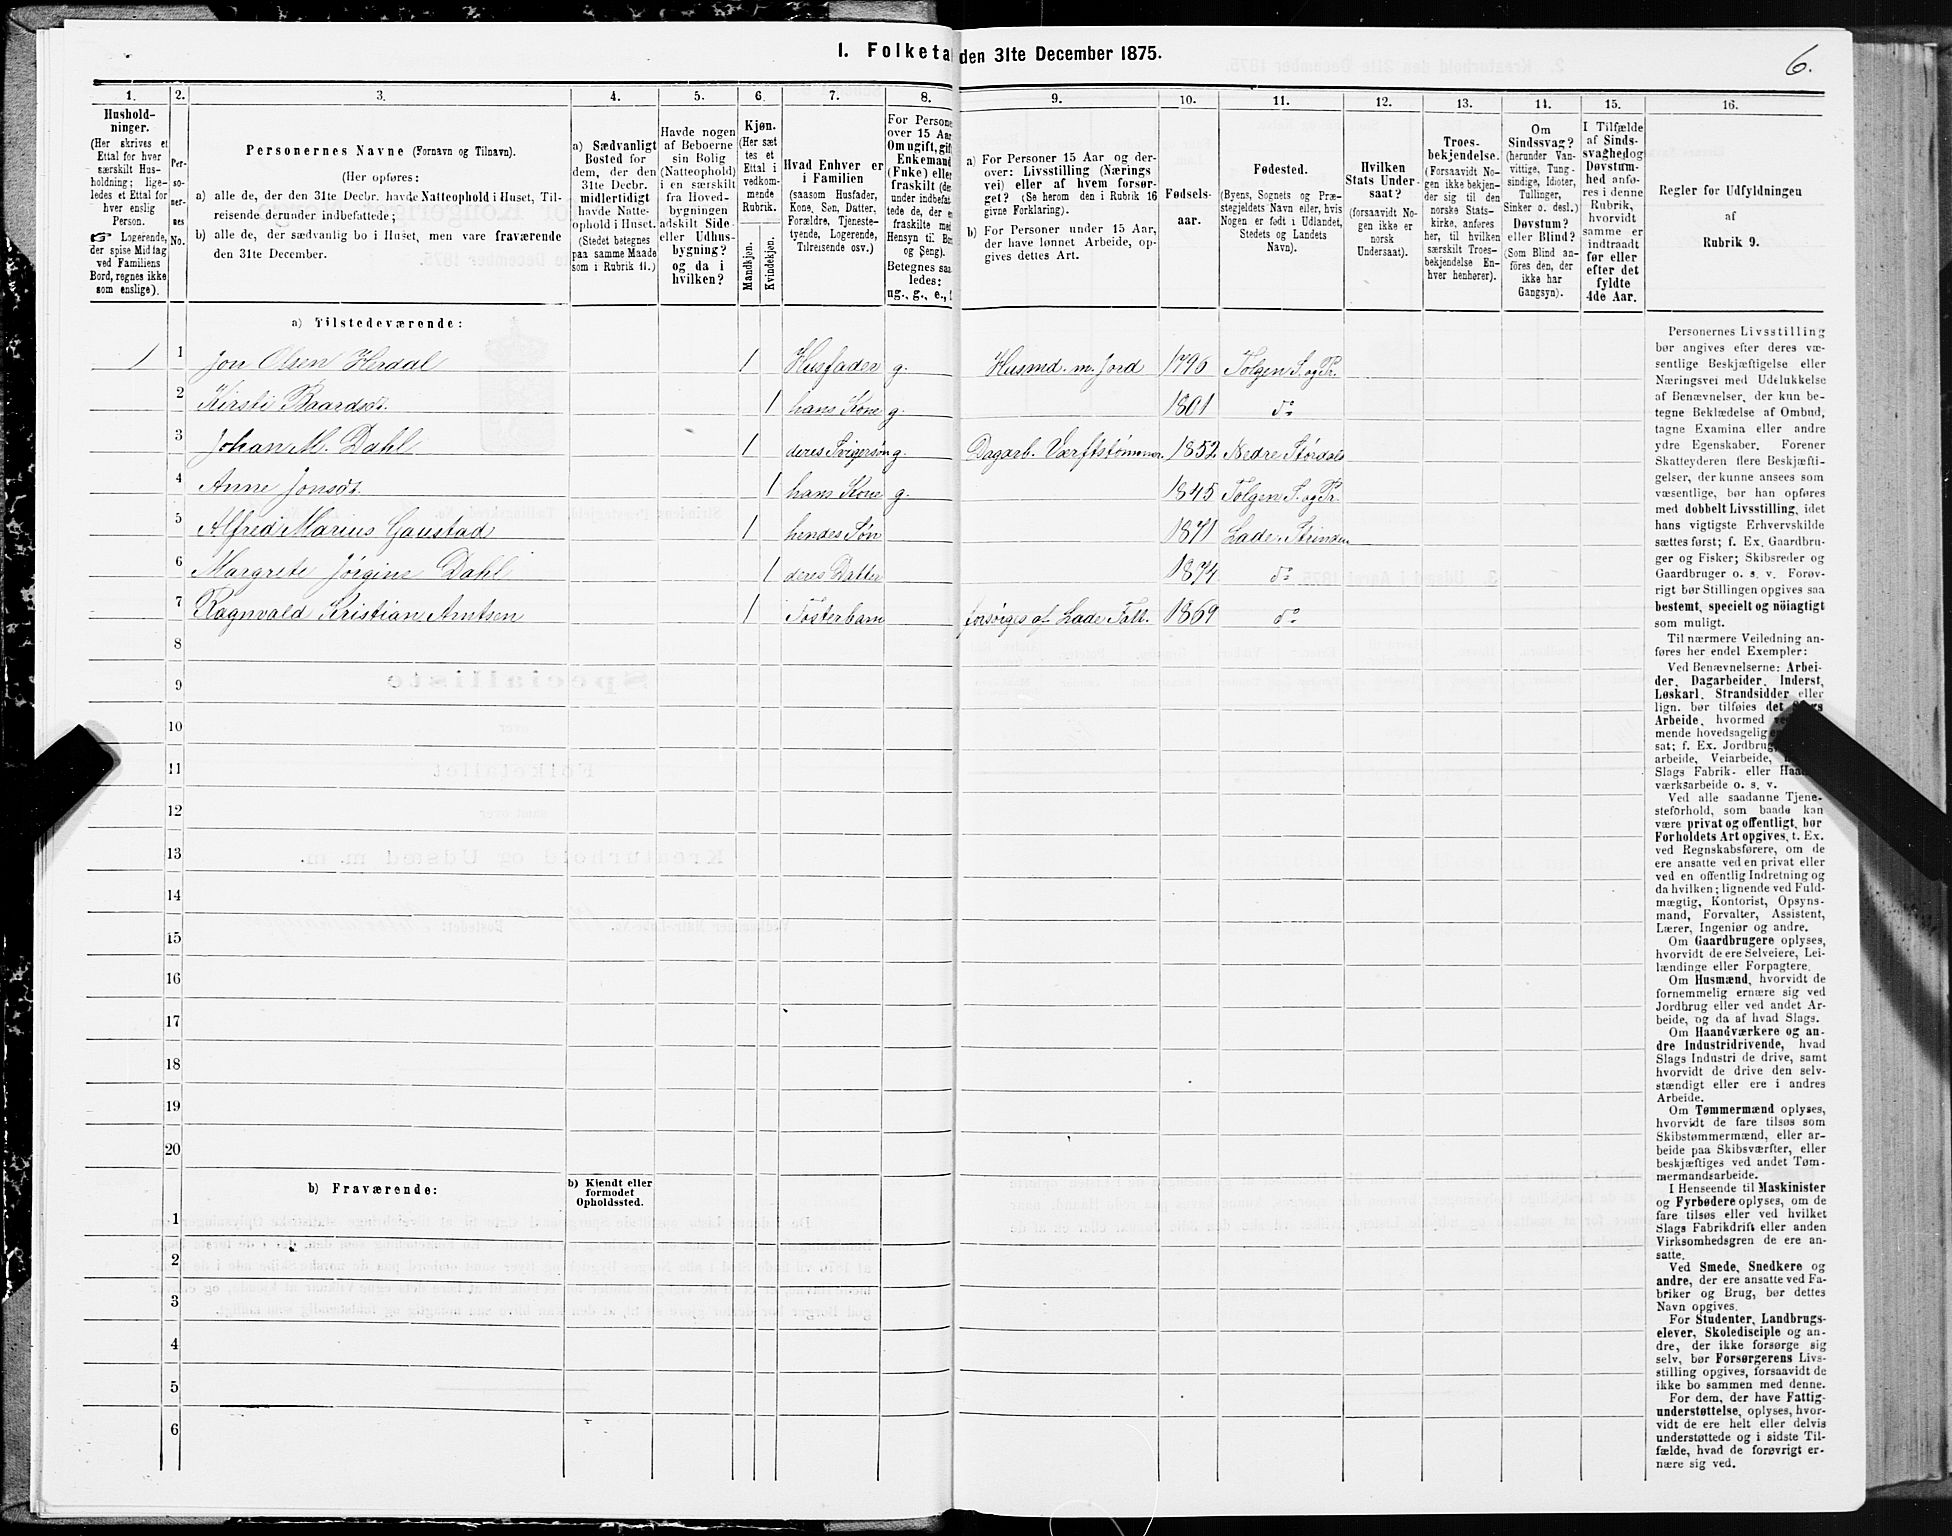 I. Folketal den 31te December 1875.
6.
1. 2. 3. 4. 5. 6. 7. 8. 9. 10. 11. 12. 13. 14. 15. 16.
Hushold-
ninger.
(Her skrives et
Ettal for hver
særskilt Hus-
holdning; lige-
ledes et Ettal for
hver enslig
Person.
☞ Logerende,
der spise Middag
ved Familiens
Bord, regnes ikke
som enslige).
Per-
so-
ner-
nes
No.
Personernes Navne (Fornavn og Tilnavn).
(Her opføres:
a) alle de, der den 31te Decbr. havde Natteophold i Huset, Til-
reisende derunder indbefattede;
b) alle de, der sædvanlig bo i Huset, men vare fraværende
den 31te December.
a) Sædvanligt
Bosted for
dem, der den
31te Decbr.
midlertidigt
havde Natte-
ophold i Huset.
(Stedet betegnes
paa samme Maade
som i Rubrik 11.)
Havde nogen
af Beboerne
sin Bolig
(Natteophold)
i en særskilt
fra Hoved-
bygningen
adskilt Side-
eller Udhus-
bygning?
og da i
hvilken?
Kjøn.
(Her sæt
tes et
Ettal i
vedkom-
mende
Rubrik.
Mandkjøn.
Kvindekjøn.
Hvad Enhver er
i Familien
(saasom Husfader,
Kone, Søn, Datter,
Forældre, Tjeneste-
tyende, Logerende,
Tilreisende osv.)
For Persone
over 15 Aar
Om ugift, gift
Enkemand
(Enke) eller
fraskilt (der
under indbefat-
tede de, der er
fraskilte med
Hensyn til Bo
og Seng).
Betegnes saa
ledes:
ug., g., e., f
a) For Personer 15 Aar og der-
over: Livsstilling (Nærings
vei) eller af hvem forsør-
get? (Se herom den i Rubrik 16
givne Forklaring).
b) For Personer under 15 Aar,
der have lønnet Arbeide, op-
gives dettes Art.
Fødsels-
aar.
Fødested.
(Byens, Sognets og Præ-
stegjeldets Navn eller, hvis
Nogen er født i Udlandet,
Stedets og Landets
Navn).
Hvilken
Stats Under-
saat?
(forsaavidt No-
gen ikke er
norsk
Undersaat).
Troes-
bekjendelse.
(Forsaavidt No-
gen ikke bekjen-
der sig til den
norske Stats-
kirke, anføres
her, til hvilken
særskilt Troes-
bekjendelse En-
hver henhører).
Om
Sindssvag?
(herunder Van-
vittige, Tung-
sindige, Idioter,
Tullinger,
Sinker o. desl.)
Døvstum?
eller Blind?
(Som Blind an-
føres den, der
ikke har
Gangsyn).
I Tilfælde
af Sinds-
svaghed og
Døvstum-
hed anfø-
res i denne
Rubrik,
hvorvidt
samme er
indtraadt
før eller
efter det
fyldte
4de Aar.
Regler for Udfyldningen
af
Rubrik 9.
a) Tilstedeværende:
1 1 Jon Olsen Herdal 1 Husfader g. Husmd. m. Jord 1796 Tolgen S. og Pr.
2 Kirsti Baardsdt. 1 hans Kone g. 1801 do
3 Johan M. Dahl 1 deres Svigersøn g. Dagarb. Værftstømmer. 1852 Nedre Størdals
4 Anne Jonsdt. 1 hans Kone g. 1845 Tolgen S. og Pr.
5 Alfred Marius Gaustad 1 hendes Søn 1871 Lade. Strinden
6 Margrete Jørgine Dahl 1 deres Datter 1874 do
7 Ragnvald Kristian Arntsen 1 Fosterbarn forsørges af Lade Fatt. 1869 do
8
9
10
11
12
13
14
15
16
17
18
19
20
b) Fraværende:
b) Kjendt eller
formodet
Opholdssted.
1
2
3
4
5
6
Personernes Livsstilling
bør angives efter deres væ-
sentlige Beskjæftigelse eller
Næringsvei med Udelukkelse
af Benævnelser, der kun be-
tegne Beklædelse af Ombud,
tagne Examina eller andre
ydre Egenskaber. Forener
Skatteyderen flere Beskjæfti-
gelser, der kunne ansees som
væsentlige, bør han opføres
med dobbelt Livsstilling, idet
hans vigtigste Erhvervskilde
sættes først; f. Ex. Gaardbru-
ger og Fisker; Skibsreder og
Gaardbruger o. s. v. Forøv-
rigt bør Stillingen opgives saa
bestemt, specielt og nöiagtigt
som muligt.
Til nærmere Veiledning an-
føres her endel Exempler:
Ved Benævnelserne: Arbei-
der, Dagarbeider, Inderst,
Løskarl, Strandsidder eller
lign. bør tilføies det Slags
Arbeide, hvormed ved
mende hovedsagelig er
sat; f. Ex. Jordbrug
arbeide, Veiarbeide,
Slags Fabrik- eller Haand
værksarbeide o. s. v.
Ved alle saadanne Tjene-
steforhold, som baade kan
være privat og offentligt, bør
Forholdets Art opgives, t. Ex.
ved Regnskabsførere, om de
ere ansatte ved en privat eller
ved en offentlig Indretning og
da hvilken; lignende ved Fuld-
mægtig, Kontorist, Opsyns-
mand, Forvalter, Assistent,
Lærer, Ingeniør og andre.
Om Gaardbrugere oplyses,
hvorvidt de ere Selveiere, Lei-
lændinge eller Forpagtere.
Om Husmænd, hvorvidt de
fornemmelig ernære sig ved
Jordbrug eller ved andet Ar-
beide, og da af hvad Slags.
Om Haandværkere og an-
dre Industridrivende, hvad
Slags Industri de drive, samt
hvorvidt de drive den selv-
stændigt eller ere i andres
Arbeide.
Om Tømmermænd oplyses,
hvorvidt de fare tilsøs som
Skibstømmermænd, eller ar-
beide paa Skibsværfter, eller
beskjæftiges ved andet Tøm-
mermandsarbeide.
I Henseende til Maskinister
og Fyrbødere oplyses, om de
fare tilsøs eller ved hvilket
Slags Fabrikdrift eller anden
Virksomhedsgren de ere an-
satte.
Ved Smede, Snedkere og
andre, der ere ansatte ved Fa-
briker og Brug, bør dettes
Navn opgives.
For Studenter, Landbrugs-
elever, Skoledisciple og an-
dre, der ikke forsørge sig
selv, bør Forsørgerens Livs-
stilling opgives, forsaavidt de
ikke bo sammen med denne.
For dem, der have Fattig-
understøttelse, oplyses, hvor-
vidt de ere helt eller delvis
understøttede og i sidste Til-
fælde, hvad de forøvrigt er-
nære sig ved.